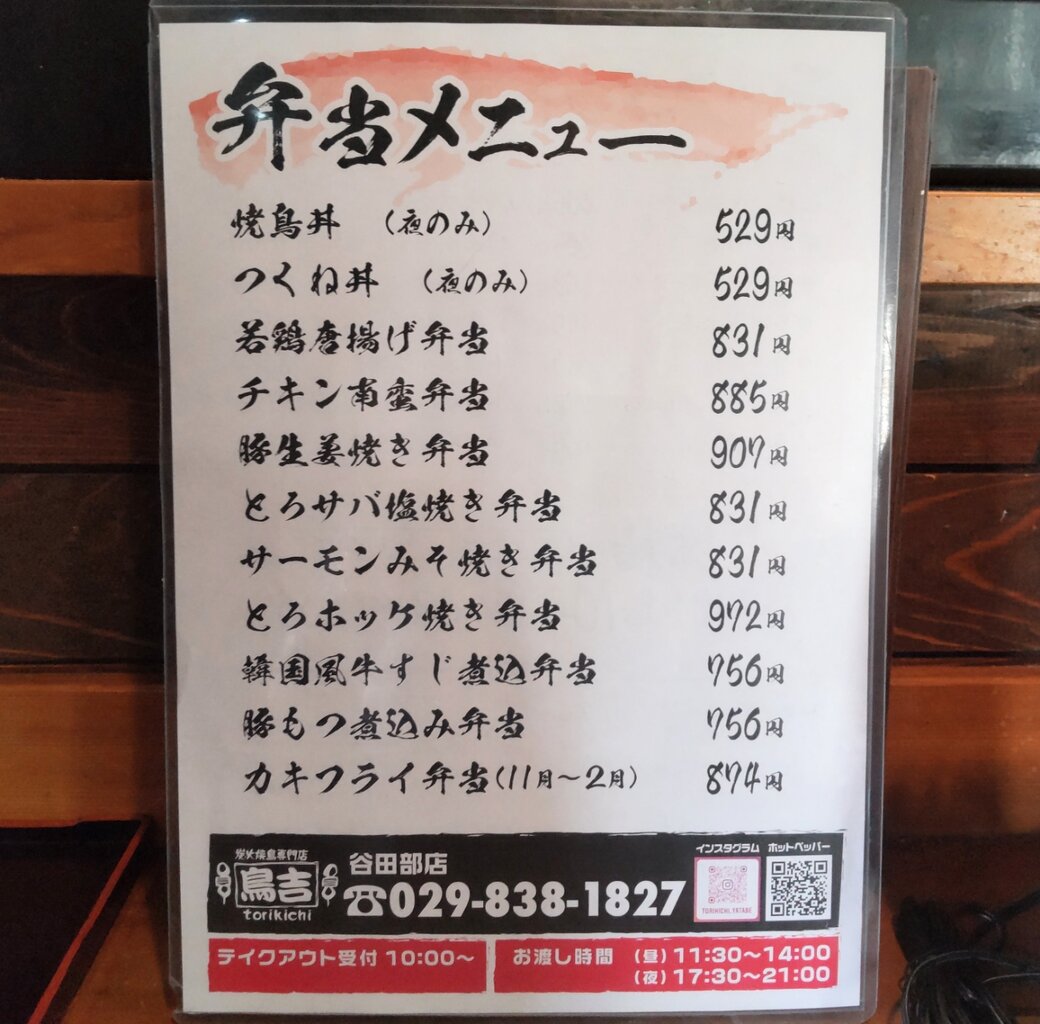 弁当メニュー
焼鳥丼 (夜のみ) 529円
つくね丼 (夜のみ) 529円
若鶏唐揚げ弁当 831円
チキン南蛮弁当 885円
豚生姜焼き弁当 907円
とろサバ塩焼き弁当 831円
サーモンみそ焼き弁当 831円
とろホッケ焼き弁当 972円
韓国風牛すじ煮込弁当 756円
豚もつ煮込み弁当 756円
カキフライ弁当(11月～2月) 874円
炭火焼鳥専門店
鳥吉
torikichi
谷田部店
☎029-838-1827
インスタグラム
TORIKICHI.YATABE
ホットペッパー
テイクアウト受付 10:00～
お渡し時間 (昼) 11:30～14:00
(夜) 17:30～21:00